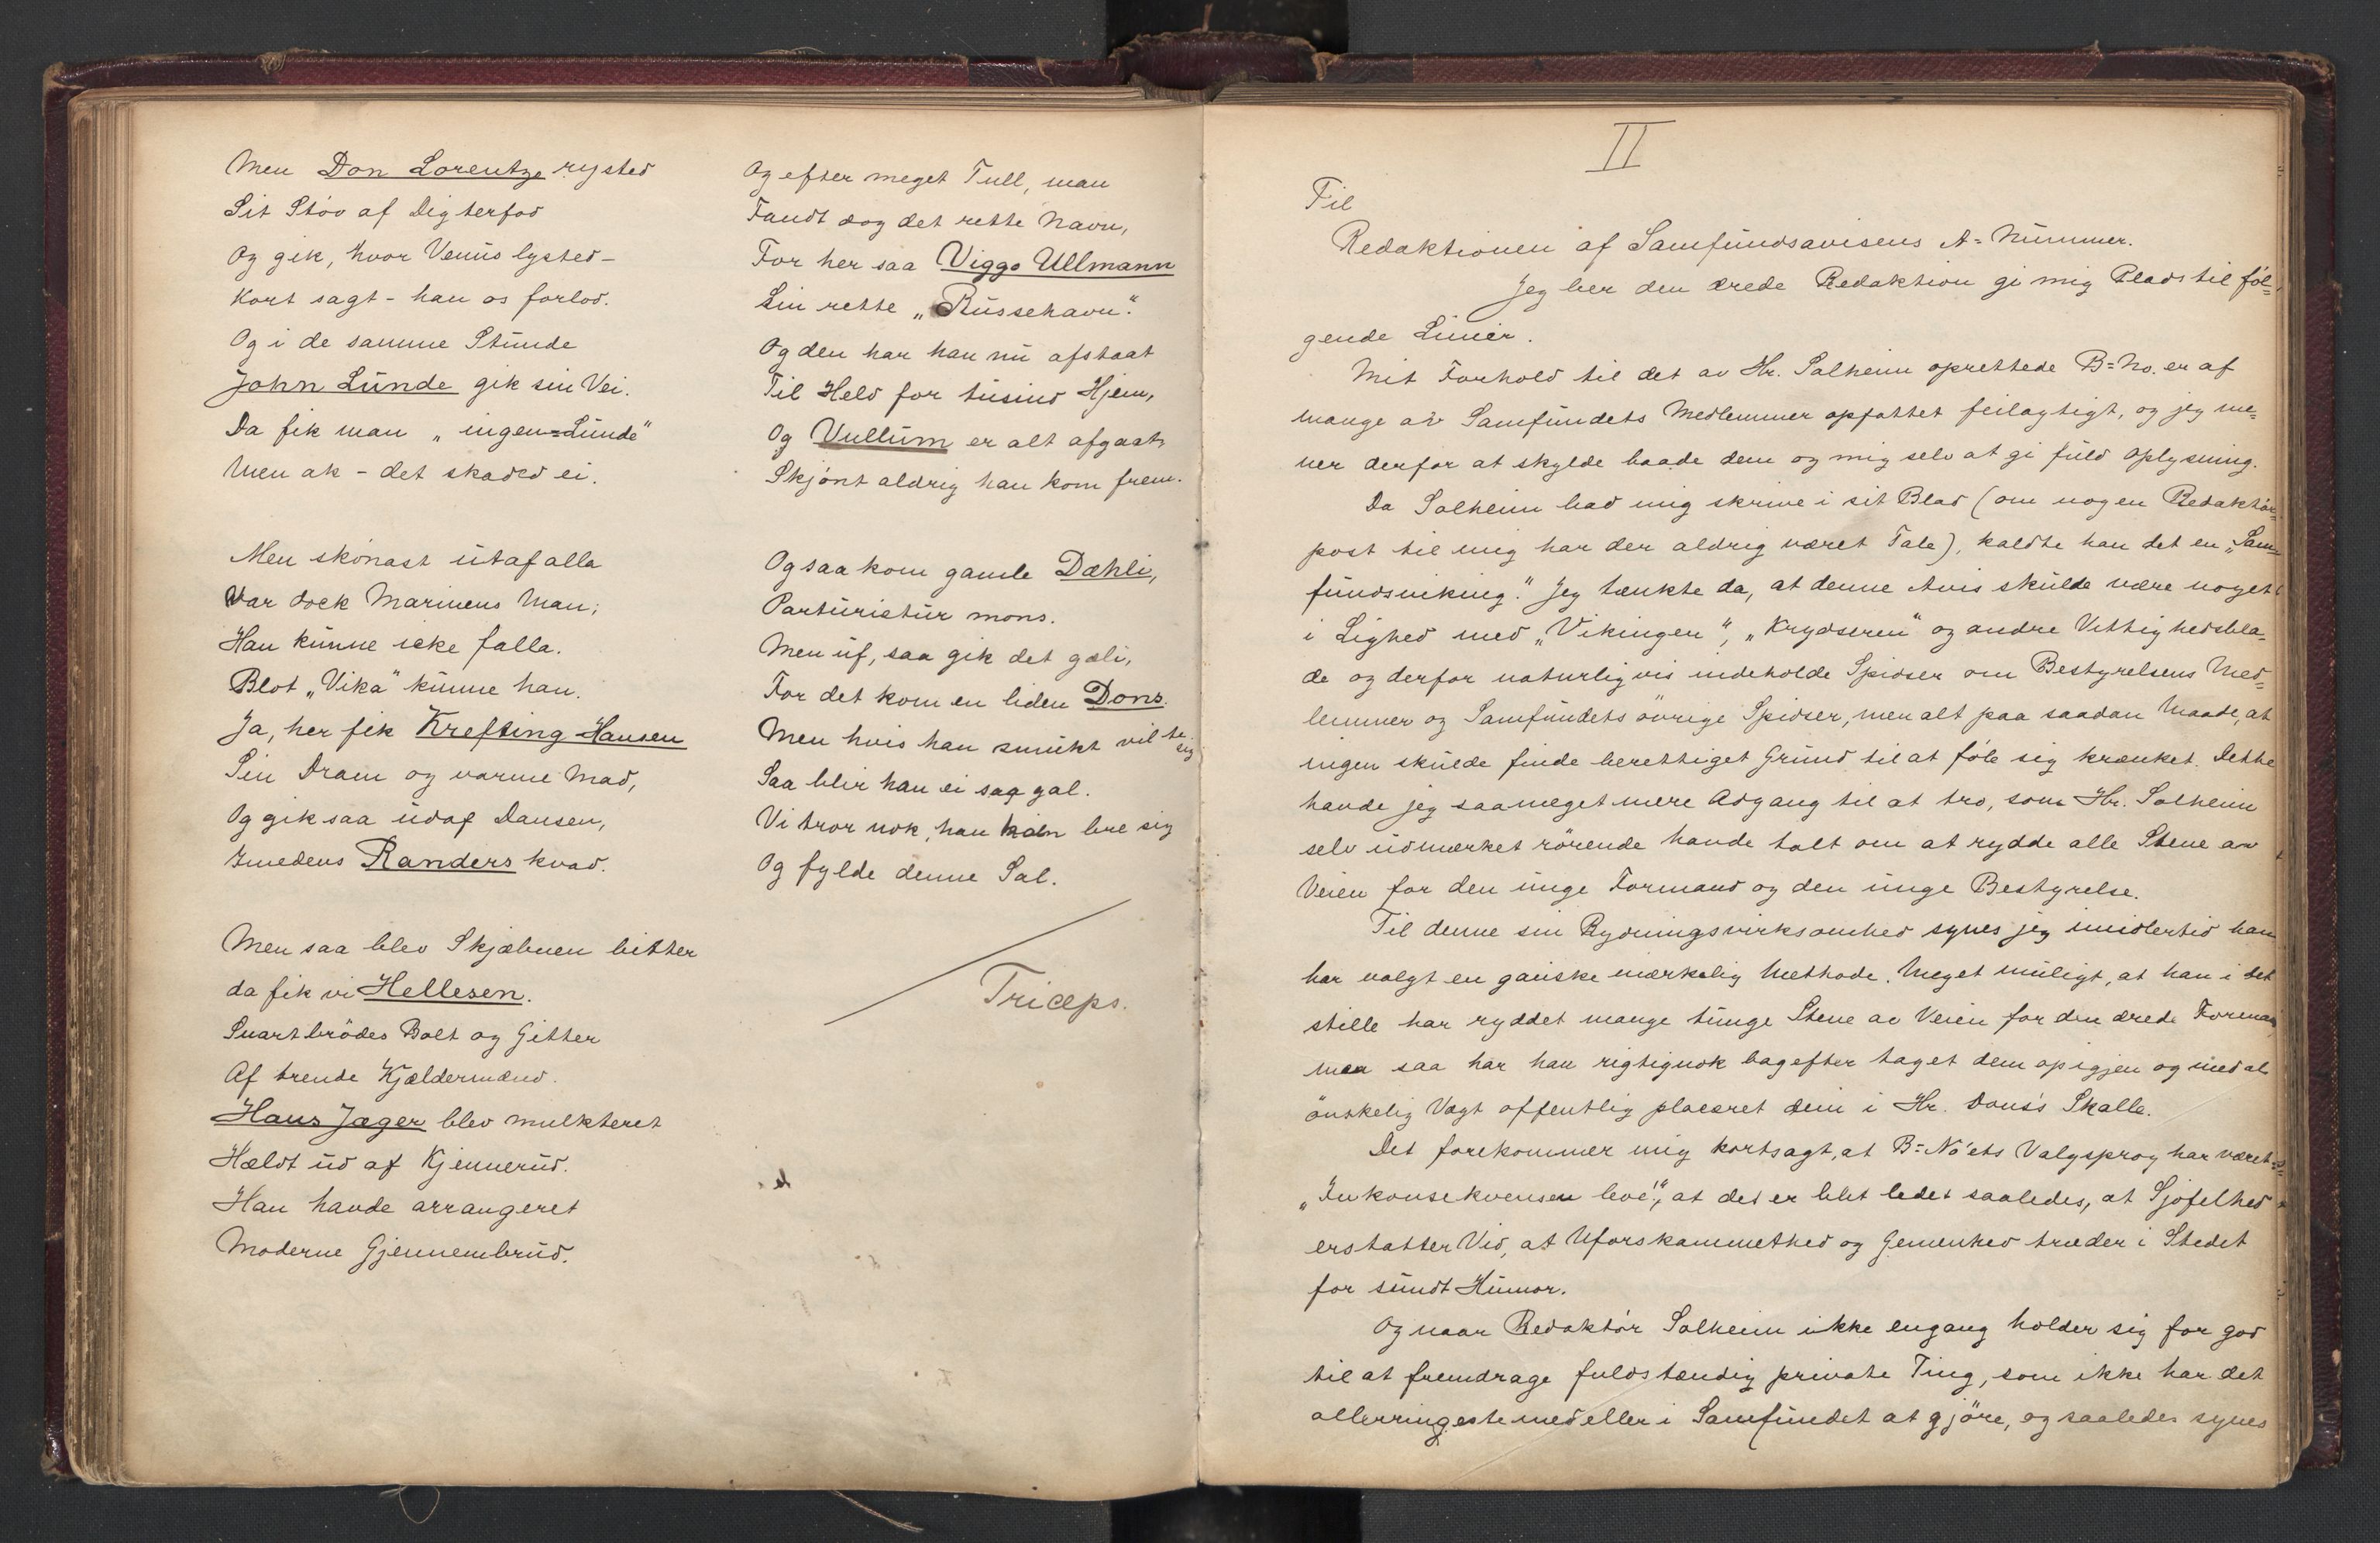 Men Don Lorentze rysted
Sit Støv af Digterfod
Og gik, hvor Venus lysted-
Kort sagt - han os forlod.
Og i de samme Stunde
John Lunde gik sin Vei.
Da fik man „ingen=Lunde"
Men ak - det skaded ei.
Men skönast utaf alla
Var dock Marinens Man;
Han kunne icke falla.
Blot „Vika" kunne han.
Ja, her fik Krefting Hansen
Sin Dram og varme Mad,
Og gik saa udaf Dansen,
Imedens Randers kvad.
Men saa blev Skjæbnen bitter
da fik vi Hellesen.
Snart brödes Bolt og Gitter
Af trende Kjældermænd.
Hans Jæger blev mulkteret
Hældt ud af Kjennerud.
Han havde arrangeret
Moderne Gjennembrud.
Og efter meget Tull, man
Fandt dog det rette Navn,
For her saa Viggo Ullmann
Sin rette „Russehavn".
Og den har han nu afstaat
Til Held for tusind Hjem,
Og Vullum er alt afgaat
Skjönt aldrig han kom frem.
Og saa kom gamle Dæhli,
Parturietur mons.
Men uf, saa gik det gæli,
For det kom en liden Dons.
Men hvis han smukt vil te sig
Saa blir han ei saa gal.
Vi tror nok, han kan bre sig
Og fylde denne Sal.
Triceps.
II
Til
Redaktionen af Samfundsavisens A=Nummer.
Jeg ber den ærede Redaktion gi mig Plads til föl=
gende Linier.
Mit Forhold til det av Hr. Solheim oprettede B=No. er af
mange av Samfundets Medlemmer opfattet feilagtigt, og jeg me=
ner derfor at skylde baade dem og mig selv at gi fuld Oplysning.
Da Solheim bad mig skrive i sit Blad (om nogen Redaktör=
post til mig har der aldrig været Tale), kaldte han det en „Sam=
fundsviking." Jeg tænkte da, at denne Avis skulde være noget
i Lighed med „Vikingen", „Krydseren" og andre Vittighedsbla=
de og derfor naturligvis indeholde Spidser om Bestyrelsens Med=
lemmer og Samfundets övrige Spidser, men alt paa saadan Maade, at
ingen skulde finde berettiget Grund til at föle sig krænket. Dette
havde jeg saameget mere Adgang til at tro, som Hr. Solheim
selv udmærket rörende havde talt om at rydde alle Stene av
Veien for den unge Formand og den unge Bestyrelse.
Til denne sin Rydningsvirksomhed synes jeg imidlertid han
har valgt en ganske mærkelig Methode. Meget muligt, at han i det
stille har ryddet mange tunge Stene av Veien for den ærede Forman
men saa har han rigtignok bagefter taget dem op igjen og med al
önskelig Vægt offentlig placeret dem i Hr. Dons's Skalle.
Det forekommer mig kortsagt, at B=No'ets Valgsprog har været:
„Inkonsekvensen leve!", at det er blet ledet saaledes, at Sjofelhed
erstatter Vid, at Uforskammethed og Gemenhed træder i Stedet
for sundt Humor.
Og naar Redaktör Solheim ikke engang holder sig for god
til at fremdrage fuldstændig private Ting, som ikke har det
allerringeste med eller i Samfundet at gjöre, og saaledes synes